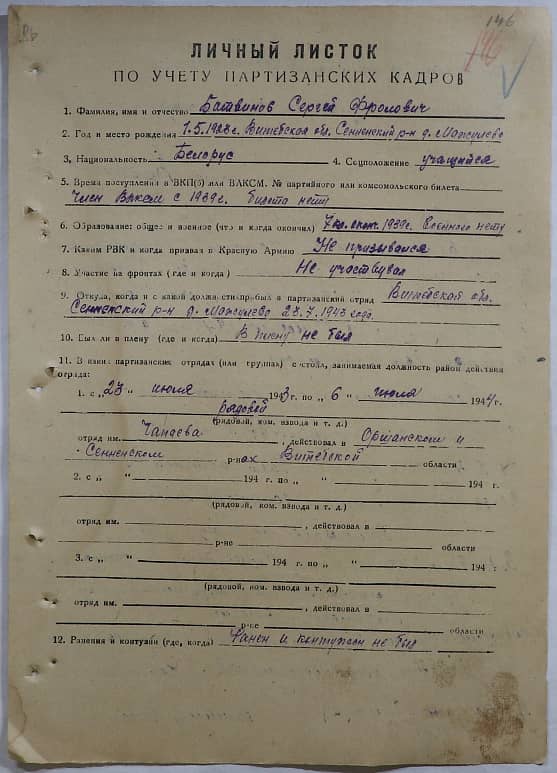 146
196
ЛИЧНЫЙ ЛИСТОК
ПО УЧЕТУ ПАРТИЗАНСКИХ КАДРОВ
1. Фамилия, имя и отчество Батвинов Сергей Фролович
2. Год и место рождения 1.5.1928г. Витебская обл. Сенненский р-н д.
3. Национальность Белорус 4. Соцположение учащийся
5. Время поступления в ВКП(б) или ВЛКСМ. № партийного или комсомольского билета
Член ВЛКСМ с 1939г. билета нету
6. Образование: общее и военное (что и когда окончил) 7 кл. окон. 1939г. Военного нету
7. Каким РВК и когда призван в Красную Армию Не призывался
8. Участие на фронтах (где и когда) Не участвувал
9. Откуда, когда и с какой должности прибыл в партизанский отряд Витебская обл.
Сенненский р-н д. 23.7.1943 года.
10. Был ли в плену (где и когда) В плену не был
11. В каких партизанских отрядах (или группах) с какого, занимаемая должность район действия
отряда:
1. с „23 “ июля 1943 г. по „ 6 “ июля 1944 г.
Рядовой
(рядовой, ком. взвода и т. д.)
отряд им. Чапаева , действовал в Оршанском и
Сенненском р-нах Витебской области
2. с „ “ 194 г. по „ “ 194 г.
(рядовой, ком. взвода и т. д.)
отряд им. , действовал в
р-не области
3. с „ “ 194 г. по „ “ 194 г.
(рядовой, ком. взвода и т. д.)
отряд им. , действовал в
р-не области
12. Ранения и контузии (где, когда) Ранен и контужен не был